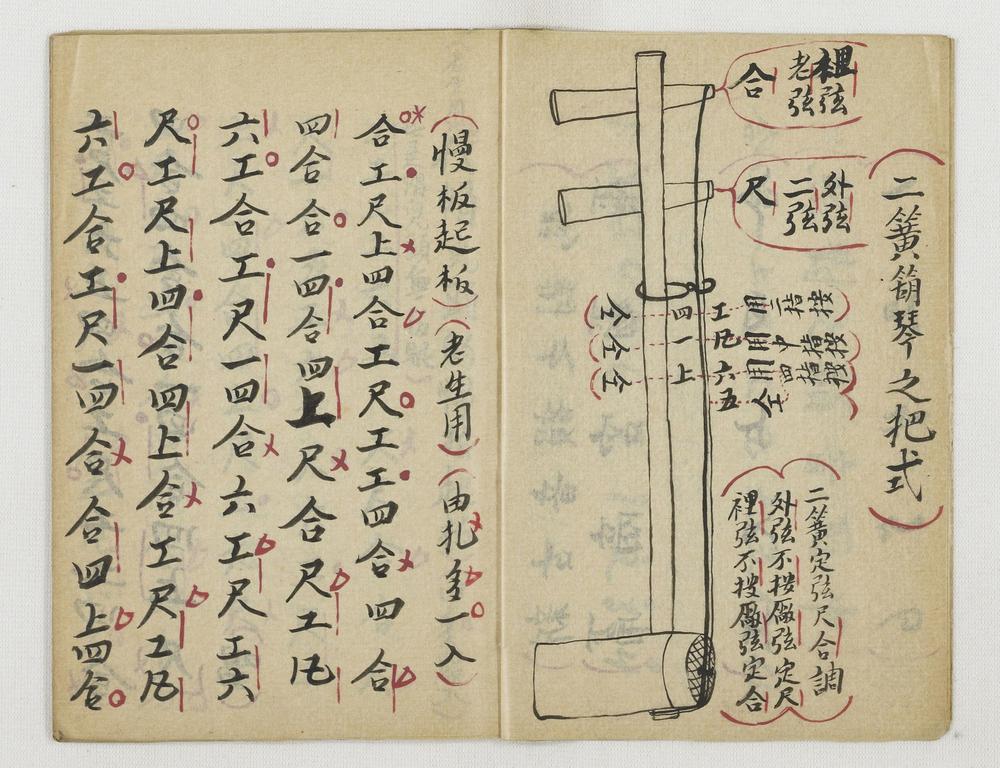 二簧箶琴之把式
裡弦
老弦
合
外弦
二弦
尺
二指按 用 工 四 仝
中指按 用 凡 一 仝
四指按 用 六 上 仝
仝 五
二簧定弦尺合調
外弦不按厰弦定尺
裡弦不按厰弦定合
(慢板起板)(老生用)(由扎一入)
合工尺上四合工尺工工四合四合
四合合一四合四上尺合尺工凡
六工合工尺一四合六工尺工六
尺工尺上四合四上合工尺工凡
六工合工尺一四合合四上四合